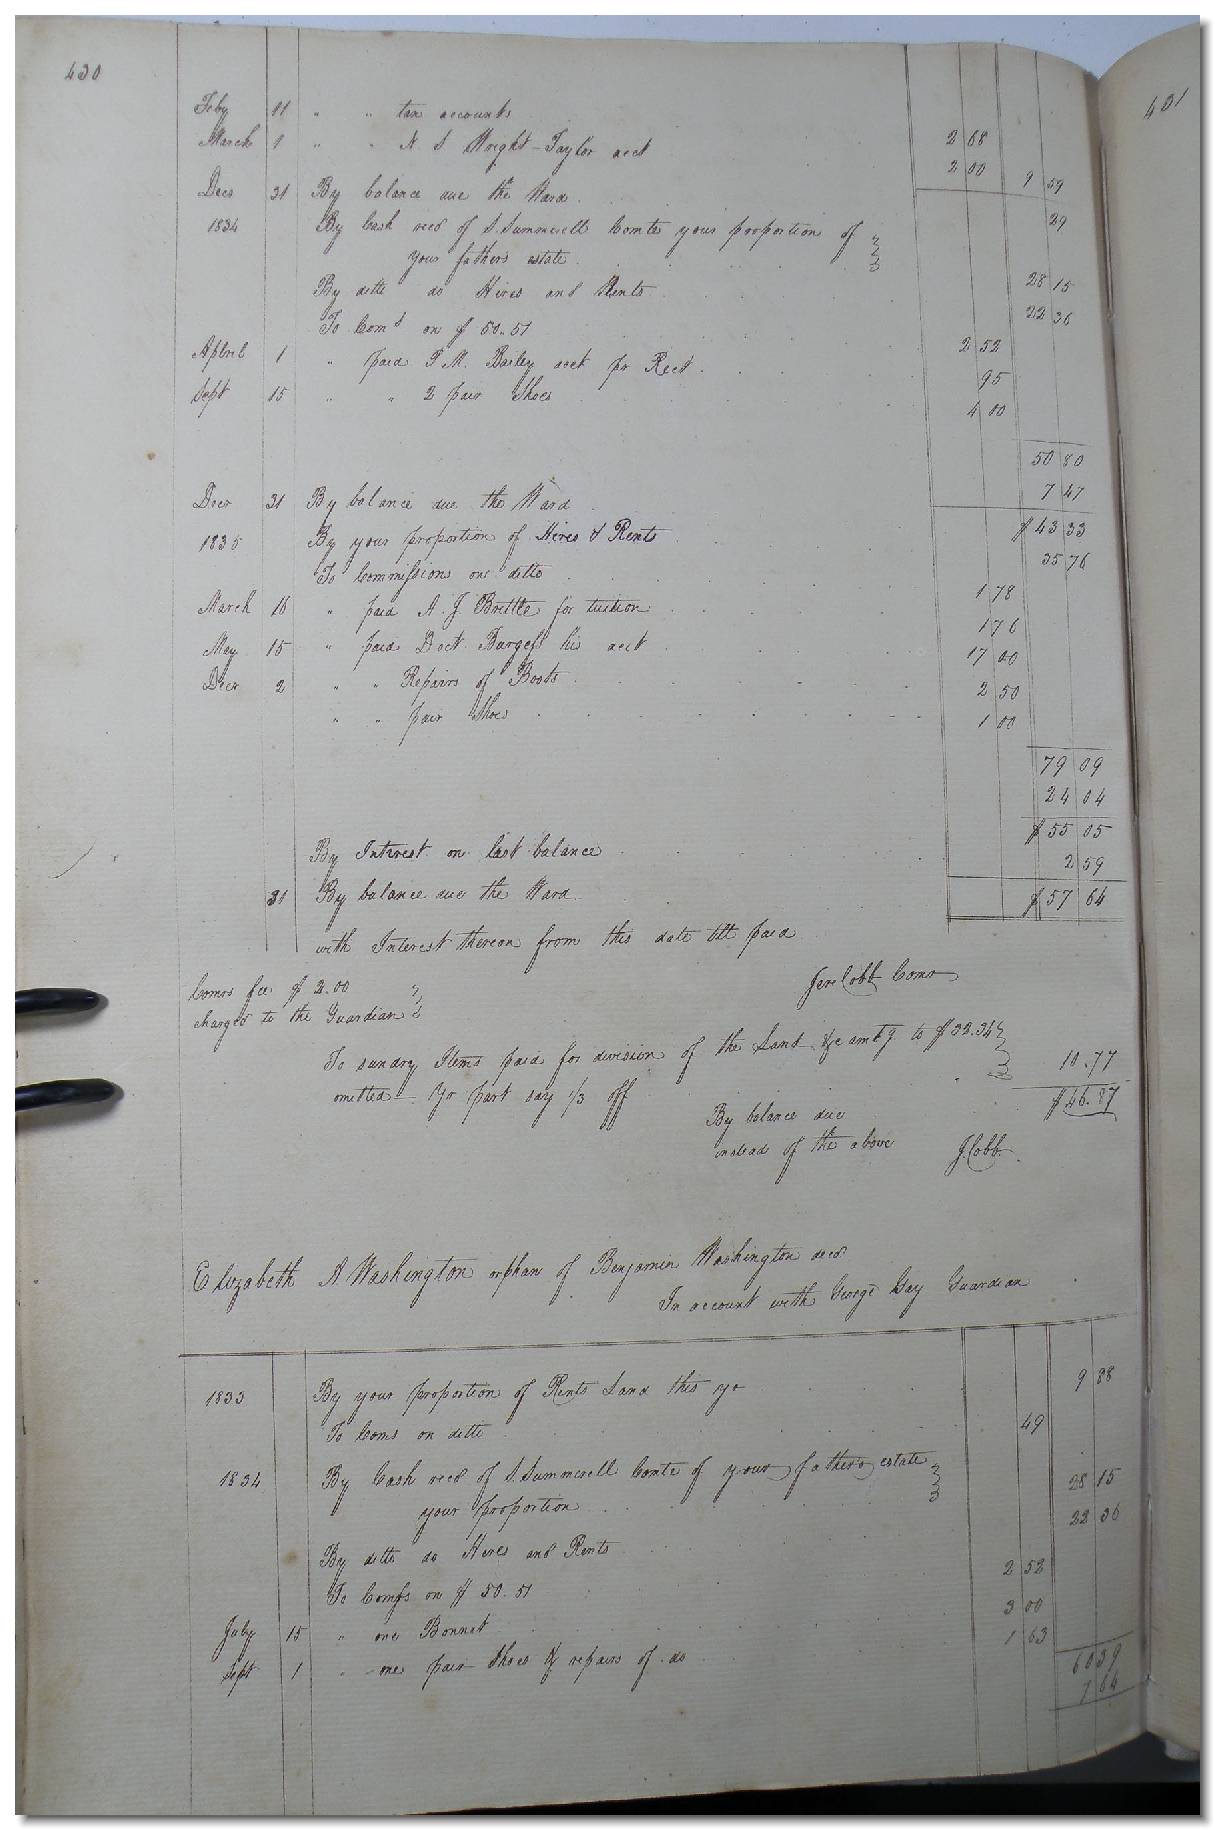 430
401
Feby 11 " " tax accounts 2 68
March 1 " " N S Wright - Taylor acct 2 00 9 59
Decr 31 By balance due the Ward 29
1834 By Cash recd of S. Summerell Comte your proportion of
your fathers estate 28 15
By ditto do Hires and Rents 22 36
To Coms on $ 50.51 2 52
Aplril 1 " paid P. M. Bailey acct pr Rect 95
Sept 15 " " 2 pair Shoes 4 00
50 80
7 47
Decr 31 By balance due the Ward $ 43 33
1835 By your proportion of Hires & Rents 35 76
To Commissions on ditto 1 78
March 16 " paid A. J. Brittle for tuition 1 76
May 15 " paid Doct. Burgess his acct 17 00
Decr 2 " " Repairs of Boots 2 50
" " pair Shoes 1 00
79 09
24 04
$ 55 05
By Interest on last balance 2 59
31 By balance due the Ward $ 57 64
with Interest thereon from this date till paid
Jere Cobb Comr
Comrs fee $ 2.00
charged to the Guardian
To sundry Items paid for division of the Land &c amtg to $ 32.34
omitted - Yr part say 1/3 off 10.77
By balance due $ 46.87
instead of the above J. Cobb.
Elizabeth A Washington orphan of Benjamin Washington decd
In account with George Gay Guardian
1833 By your proportion of Rents Land this yr 9 88
To Coms on ditto 49
1834 By Cash recd of S. Summerell Comte of your fathers estate
your proportion 28 15
By ditto do Hires and Rents 22 36
To Comss on $ 50.51 2 52
July 15 " one Bonnet 3 00
Sept 1 " one pair Shoes & repairs of do 1 63
60 39
7 64